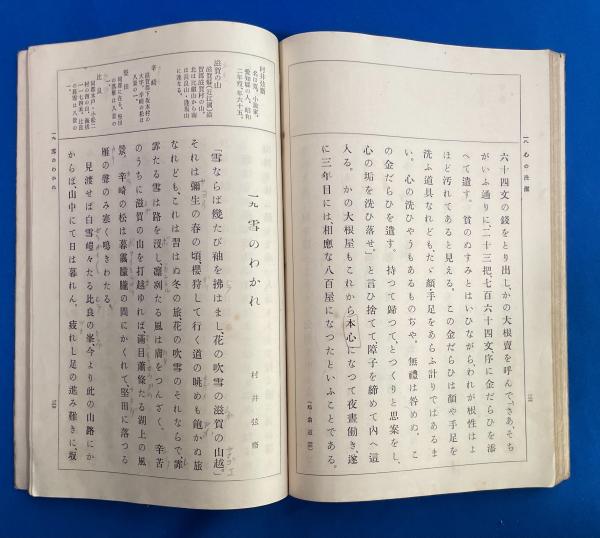 一八 心の洗濯
六十四文の錢をとり出し、かの大根賣を呼んで、「さあ、そち
がいふ通りに、二十三把、七百六十四文序に金だらひを添
へて遣す。貧のぬすみとはいひながら、われが根性はよ
ほど汚れてあると見える。この金だらひは顏や手足を
洗ふ道具なれども、たゞ顏・手足をあらふ計りではあるま
い。心の洗ひやうもあるものぢや。無禮は咎めぬ。こ
の金だらひを遣す。持つて歸つて、とつくりと思案をし、
心の垢を洗ひ落せ。」と言ひ捨てて障子を締めて內へ這
入る。かの大根屋もこれから本心になつて夜晝働き、遂
に三年目には、相應な八百屋になつたといふことである。
村井弦齋
名は寬。小說家。
愛知縣の人。昭和
二年歿、年六十五。
滋賀の山
滋賀縣(近江國)滋
賀郡滋賀村の山。
北は比叡山から南
は長良山・逢坂山
に連なる。
辛崎
滋賀郡下坂本村の
大字。辛崎の松は
八景の一。
堅田
同郡に在り。堅田
の落雁は八景の
一。
比良
同郡木戶・小松二
村の西の山。海拔
一一七四米。比良
の暮雪は八景の
一。
一九 雪のわかれ
村井弦齋
「雪ならば幾たび袖を拂はまし、花の吹雪の滋賀の山越。」
それは彌生の春の頃、櫻狩して行く道の眺めも飽かぬ旅
なれども、これは習はぬ冬の旅、花の吹雪のそれならで、霏
霏たる雪は路を浸し、凜冽たる風は膚をつんざく。辛苦
のうちに滋賀の山を打越ゆれば、滿目蕭條たる湖上の風
景、辛崎の松は暮靄朦朧の間にかくれて、堅田に落つる
雁の聲のみ寒く鳴きわたる。
見渡せば白雪皚々たる比良の峯、今より此の山路にか
からば、山中にて日は暮れん。疲れし足の進み難きに、坂
一九 雪のわかれ